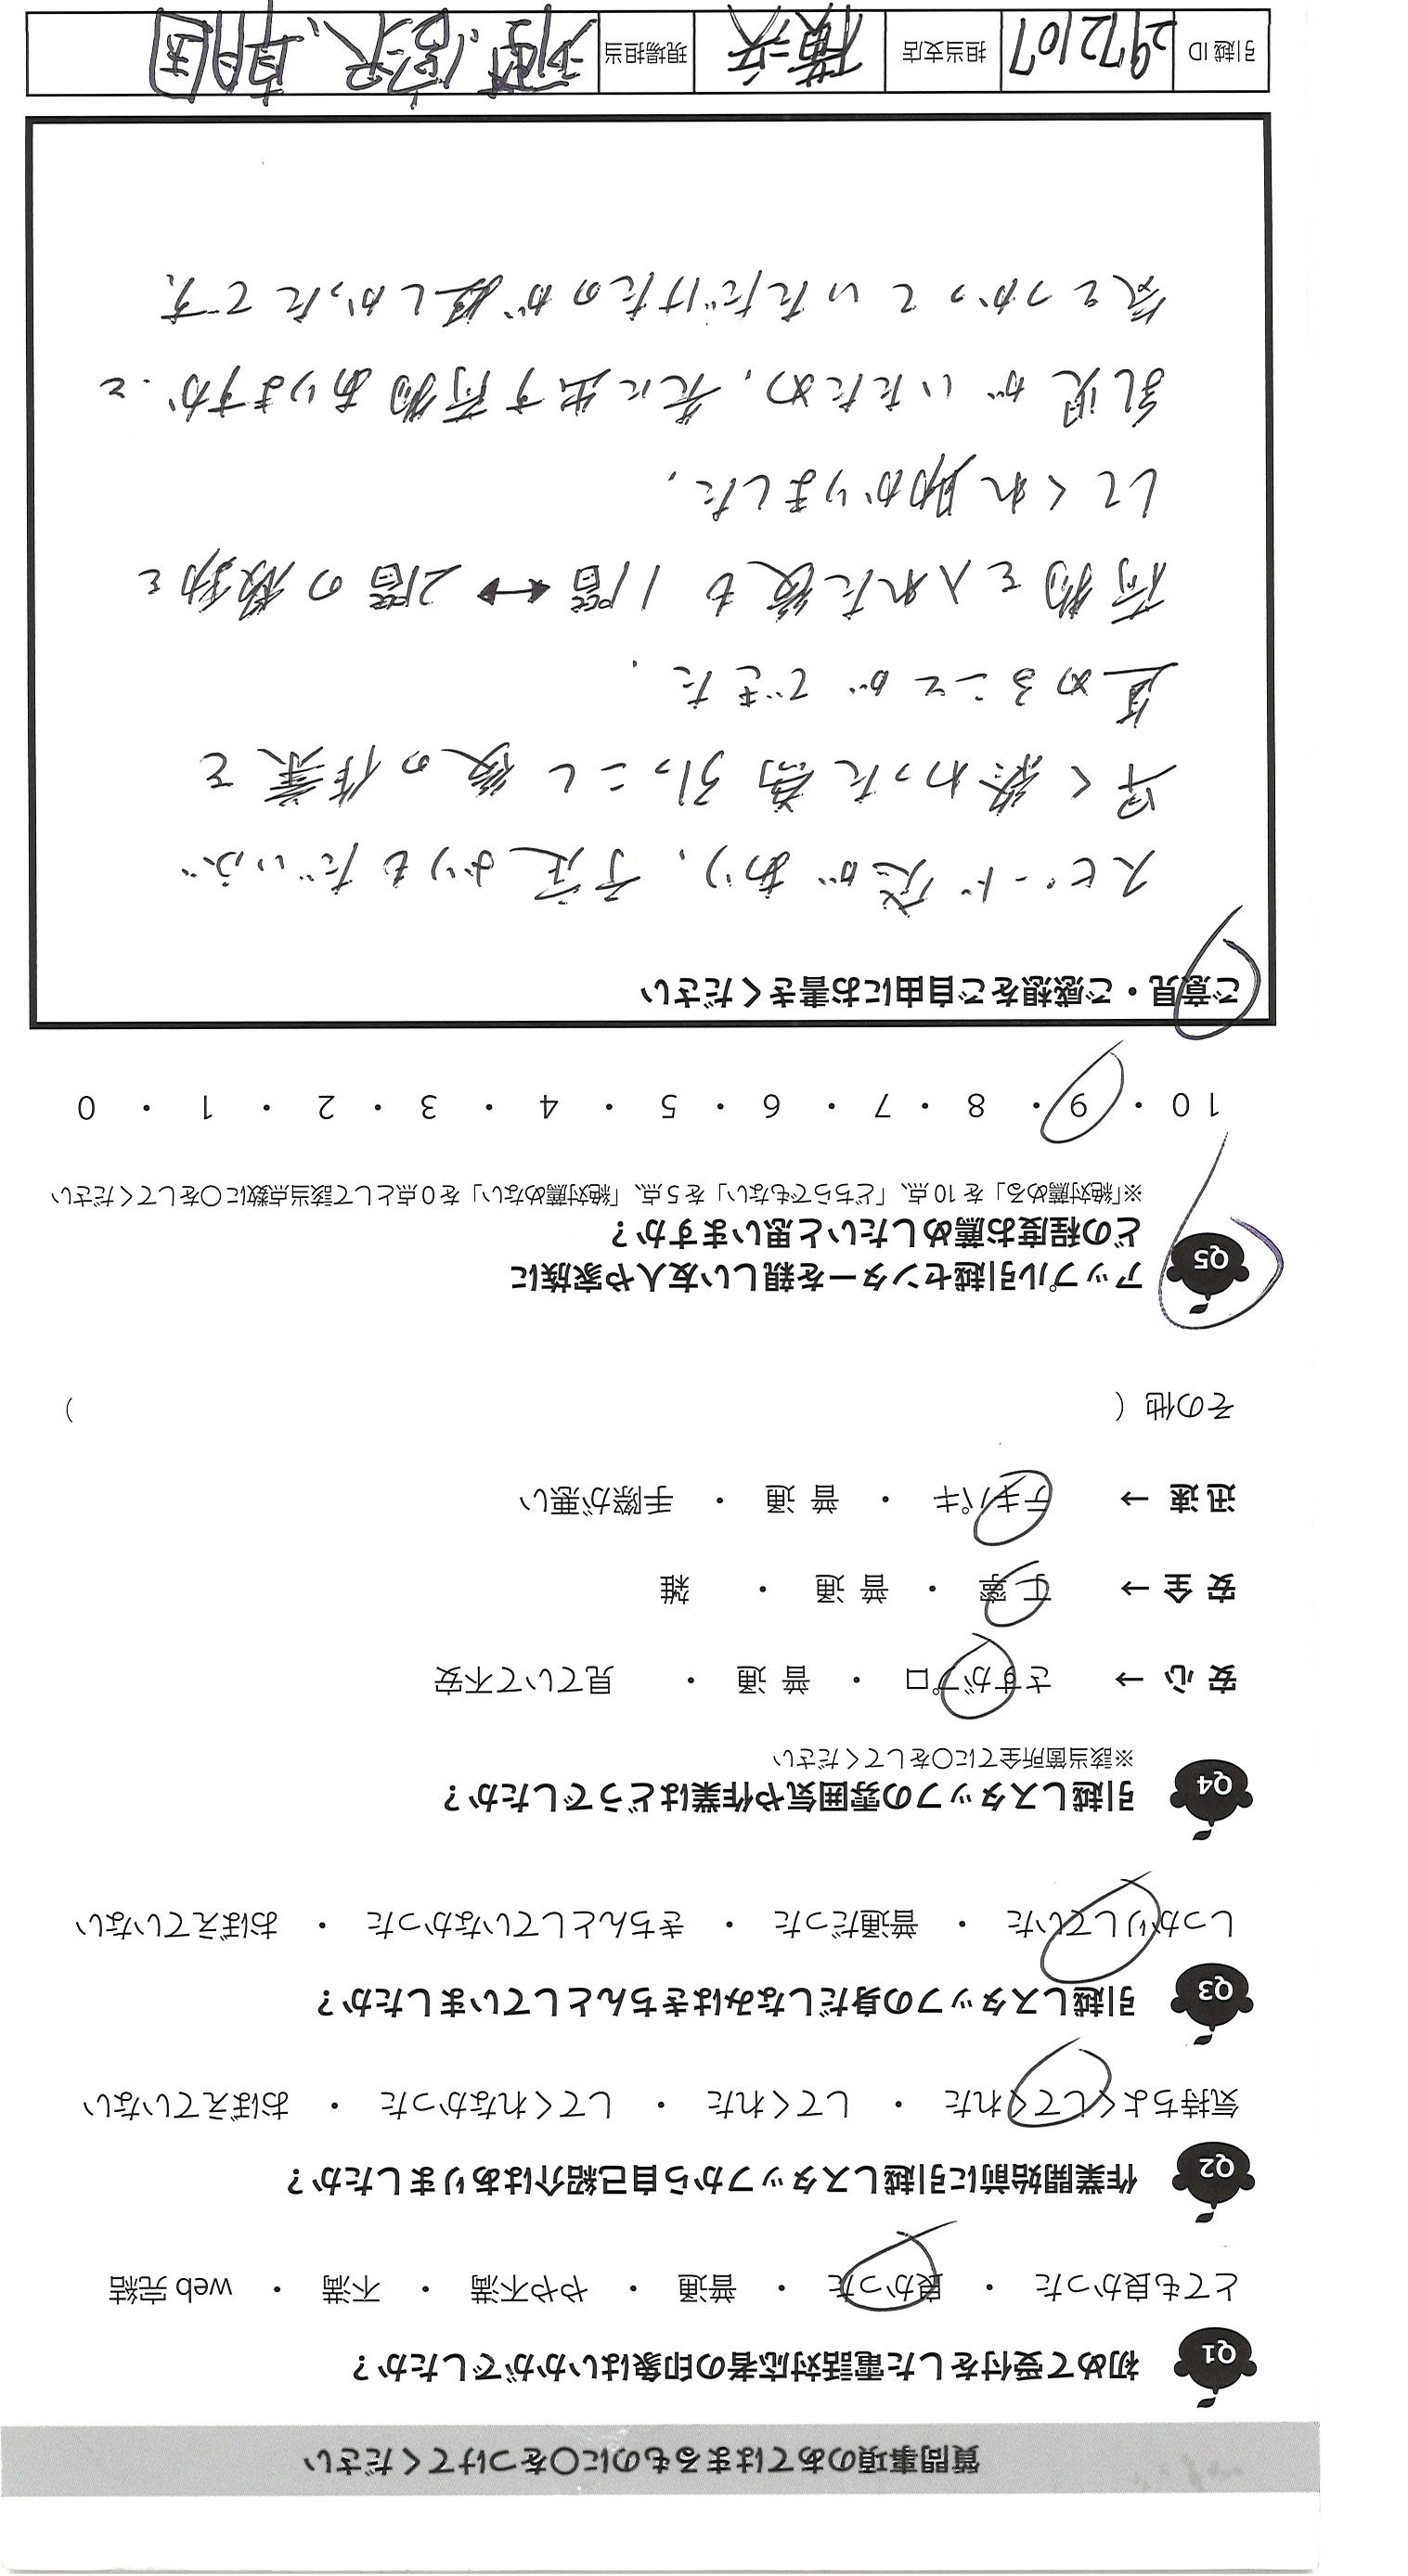 質問事項のあてはまるものに○をつけてください
Q1 初めて受付をした電話対応者の印象はいかがでしたか？
とても良かった ・ 良かった ・ 普通 ・ やや不満 ・ 不満 ・ web 完結
Q2 作業開始前に引越しスタッフから自己紹介はありましたか？
気持ちよくしてくれた ・ してくれた ・ してくれなかった ・ おぼえていない
Q3 引越しスタッフの身だしなみはきちんとしていましたか？
しっかりしていた ・ 普通だった ・ きちんとしていなかった ・ おぼえていない
Q4 引越しスタッフの雰囲気や作業はどうでしたか？
※該当箇所全てに○をしてください
安 心 → さすがプロ ・ 普 通 ・ 見ていて不安
安 全 → 丁 寧 ・ 普 通 ・ 雑
迅 速 → テキパキ ・ 普 通 ・ 手際が悪い
その他（ ）
Q5 アップル引越センターを親しい友人や家族に
どの程度お薦めしたいと思いますか？
※「絶対薦める」を 10 点、「どちらでもない」を 5 点、「絶対薦めない」を 0 点として該当点数に○をしてください
10 ・ 9 ・ 8 ・ 7 ・ 6 ・ 5 ・ 4 ・ 3 ・ 2 ・ 1 ・ 0
ご意見・ご感想をご自由にお書きください
スピード感があり、予定よりもだいぶ
早く終わった為引っこし後の作業を
進めることができた．
荷物を入れた後も 1階↔2階の移動を
してくれ助かりました．
乳児がいたため、先に出す荷物ありますか．と
気をつかっていただけたのが嬉しかったです．
引越 ID 2972107 担当支店 横浜 現場担当 宮沢、